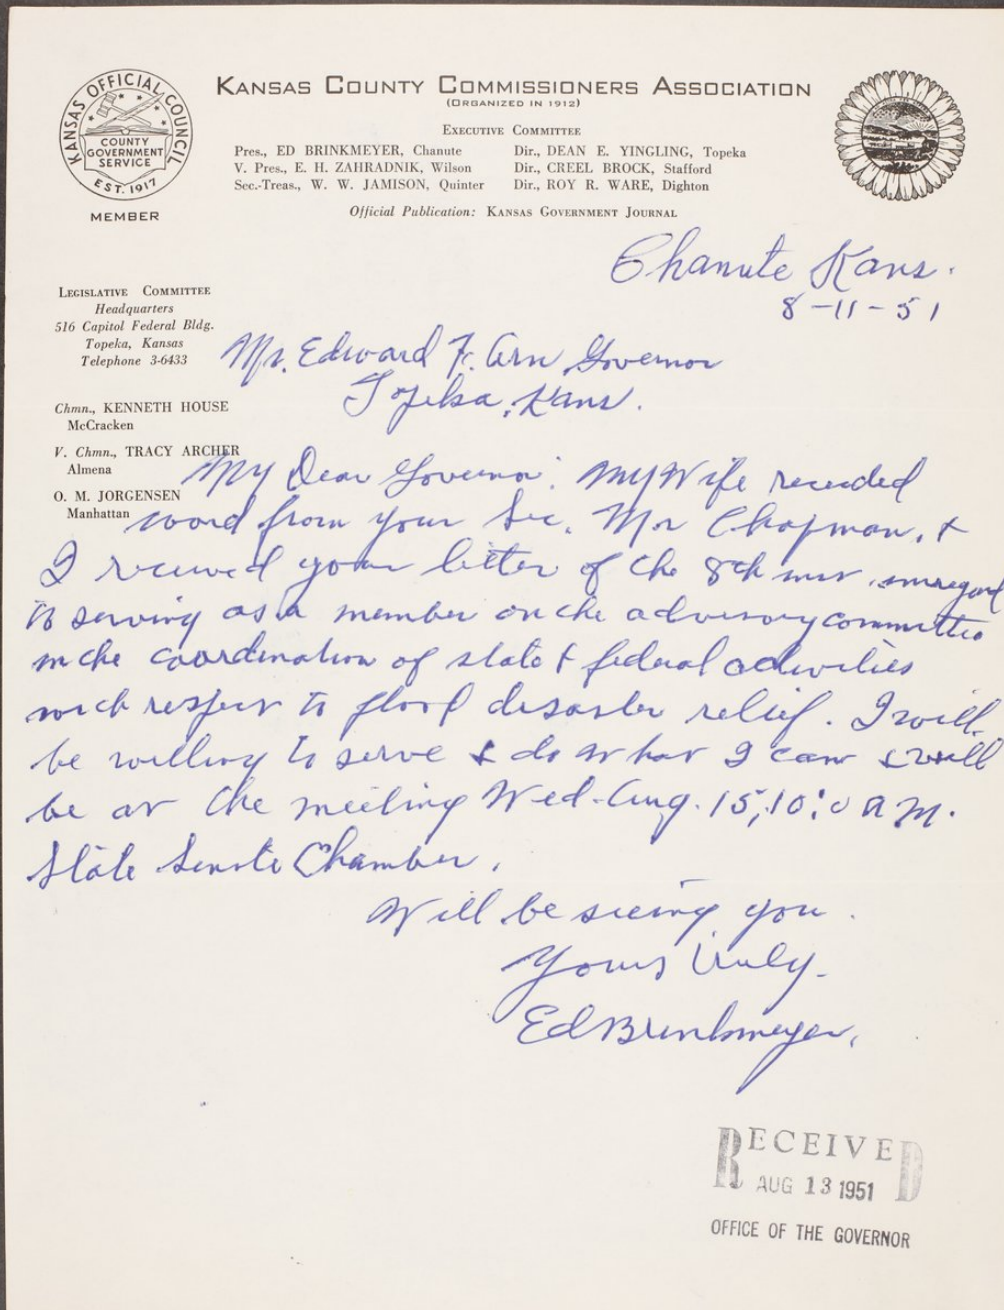 KANSAS OFFICIAL COUNCIL
COUNTY
GOVERNMENT
SERVICE
EST. 1917
MEMBER
KANSAS COUNTY COMMISSIONERS ASSOCIATION
(ORGANIZED IN 1912)
EXECUTIVE COMMITTEE
Pres., ED BRINKMEYER, Chanute
V. Pres., E. H. ZAHRADNIK, Wilson
Sec.-Treas., W. W. JAMISON, Quinter
Dir., DEAN E. YINGLING, Topeka
Dir., CREEL BROCK, Stafford
Dir., ROY R. WARE, Dighton
Official Publication: KANSAS GOVERNMENT JOURNAL
LEGISLATIVE COMMITTEE
Headquarters
516 Capitol Federal Bldg.
Topeka, Kansas
Telephone 3-6433
Chmn., KENNETH HOUSE
McCracken
V. Chmn., TRACY ARCHER
Almena
O. M. JORGENSEN
Manhattan
Chanute Kans.
8-11-51
Mr. Edward F. Arn, Governor
Topeka, Kans.
My Dear Governor: My Wife received
word from your Sec. Mr Chapman, &
I received your letter of the 8th inst. in regard
to serving as a member on the advisory committee
in the coordination of state & federal activities
with respect to flood disaster relief. I will
be willing to serve & do what I can & will
be at the meeting Wed-Aug. 15, 10:00 A M.
State Senate Chamber.
Will be seeing you.
Yours truly.
Ed Brinkmeyer.
RECEIVED
AUG 13 1951
OFFICE OF THE GOVERNOR